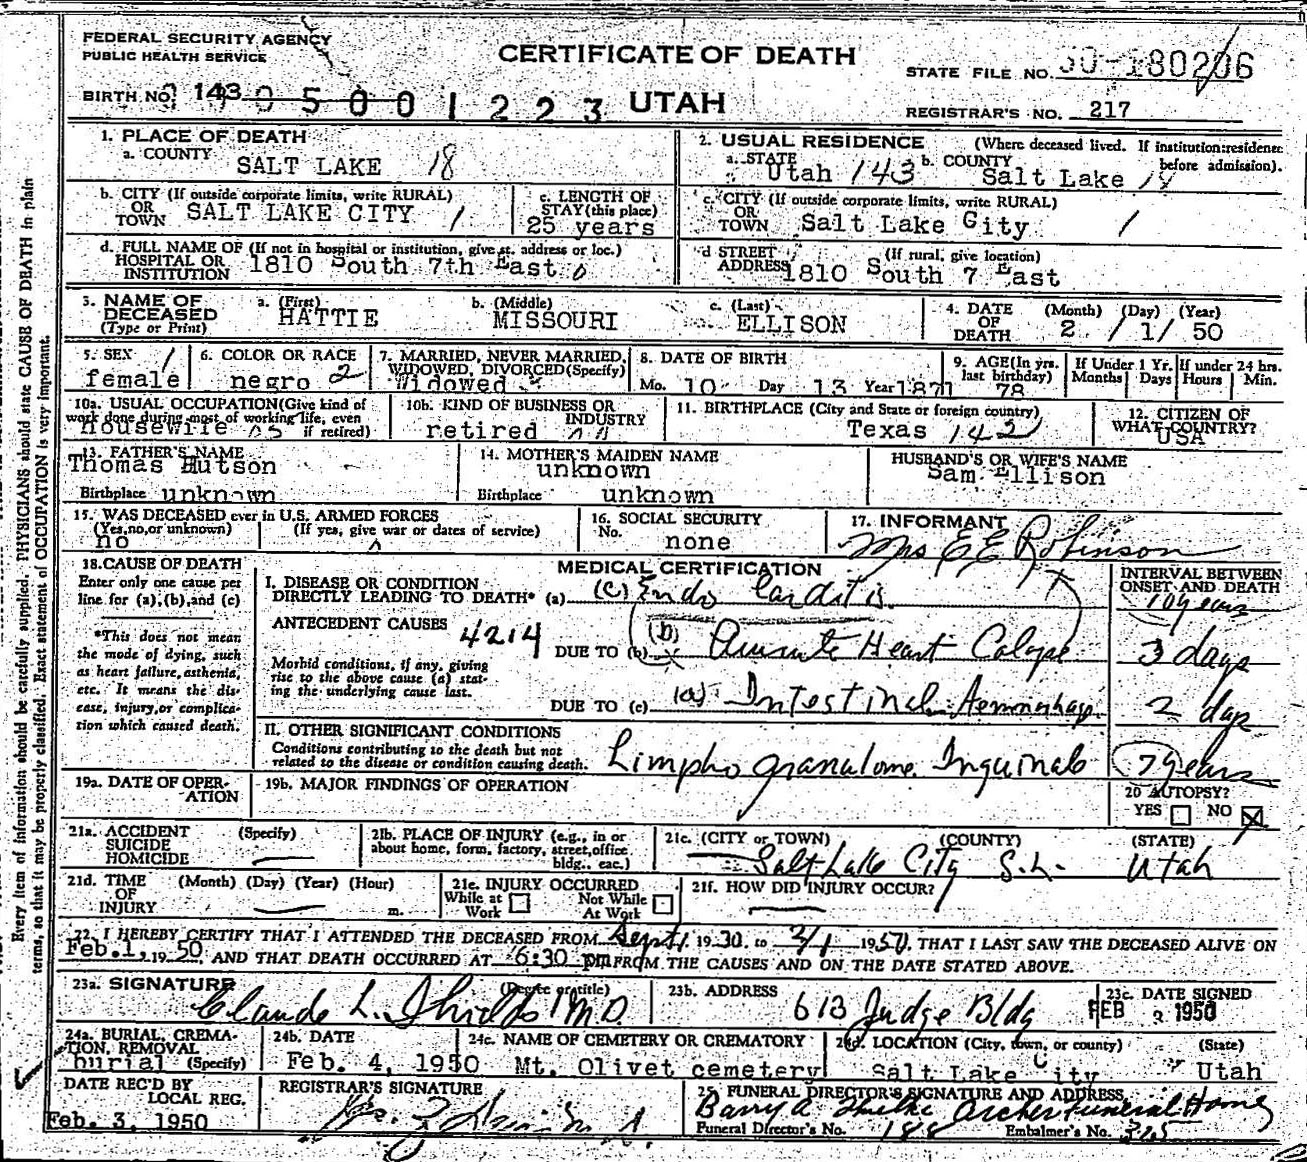 FEDERAL SECURITY AGENCY
PUBLIC HEALTH SERVICE
CERTIFICATE OF DEATH
STATE FILE NO. 50-180206
BIRTH NO. 143 0 5 0 0 1 2 2 3 UTAH
REGISTRAR'S NO. 217
1. PLACE OF DEATH
a. COUNTY
SALT LAKE 18
2. USUAL RESIDENCE (Where deceased lived. If institution:residence before admission).
a. STATE Utah 143 b. COUNTY Salt Lake 18
b. CITY (If outside corporate limits, write RURAL)
OR
TOWN SALT LAKE CITY 1
c. LENGTH OF
STAY (this place)
25 years
c. CITY (If outside corporate limits, write RURAL)
OR
TOWN Salt Lake City 1
d. FULL NAME OF (If not in hospital or institution, give st. address or loc.)
HOSPITAL OR
INSTITUTION 1810 South 7th East 0
d STREET (If rural, give location)
ADDRESS 1810 South 7 East
3. NAME OF
DECEASED
(Type or Print)
a. (First)
HATTIE
b. (Middle)
MISSOURI
c. (Last)
ELLISON
4. DATE
OF
DEATH
(Month) (Day) (Year)
2 / 1/ 50
5. SEX 1
female
6. COLOR OR RACE
negro 2
7. MARRIED, NEVER MARRIED,
WIDOWED, DIVORCED (Specify)
Widowed
8. DATE OF BIRTH
Mo. 10 Day 13 Year 1871
9. AGE (In yrs.
last birthday)
78
If Under 1 Yr.
Months Days
If under 24 hrs.
Hours Min.
10a. USUAL OCCUPATION (Give kind of
work done during most of working life, even
if retired)
housewife
10b. KIND OF BUSINESS OR
INDUSTRY
retired
11. BIRTHPLACE (City and State or foreign country)
Texas 142
12. CITIZEN OF
WHAT COUNTRY?
USA
13. FATHER'S NAME
Thomas Hutson
Birthplace unknown
14. MOTHER'S MAIDEN NAME
unknown
Birthplace unknown
HUSBAND'S OR WIFE'S NAME
Sam Ellison
15. WAS DECEASED ever in U.S. ARMED FORCES
(Yes, no, or unknown) (If yes, give war or dates of service)
no
16. SOCIAL SECURITY
No. none
17. INFORMANT
Mrs E E Robinson
18. CAUSE OF DEATH
Enter only one cause per
line for (a), (b), and (c)
*This does not mean
the mode of dying, such
as heart failure, asthenia,
etc. It means the dis-
ease, injury, or complica-
tion which caused death.
MEDICAL CERTIFICATION
INTERVAL BETWEEN
ONSET AND DEATH
I. DISEASE OR CONDITION
DIRECTLY LEADING TO DEATH* (a) (c) Endo Carditis 10 years
ANTECEDENT CAUSES 4214
Morbid conditions, if any, giving
rise to the above cause (a) stat-
ing the underlying cause last.
DUE TO (b) (b) Heart Colapse 3 days
DUE TO (c) (a) Intestinal Hemorrhage 2 days
II. OTHER SIGNIFICANT CONDITIONS
Conditions contributing to the death but not
related to the disease or condition causing death.
Limpho granulome Inguinale 7 years
19a. DATE OF OPER-
ATION
19b. MAJOR FINDINGS OF OPERATION
20 AUTOPSY?
YES NO
21a. ACCIDENT (Specify)
SUICIDE
HOMICIDE
21b. PLACE OF INJURY (e.g., in or
about home, form, factory, street, office
bldg., eac.)
21c. (CITY or TOWN) (COUNTY) (STATE)
Salt Lake City S.L. Utah
21d. TIME (Month) (Day) (Year) (Hour)
OF
INJURY m.
21e. INJURY OCCURRED
While at Work Not While At Work
21f. HOW DID INJURY OCCUR?
22. I HEREBY CERTIFY THAT I ATTENDED THE DECEASED FROM Sept 1, 1930, to 2/1 1950, THAT I LAST SAW THE DECEASED ALIVE ON
Feb. 1, 19 50 AND THAT DEATH OCCURRED AT 6:30 pm FROM THE CAUSES AND ON THE DATE STATED ABOVE.
23a. SIGNATURE (Degree or title)
Claude L. Shields M.D.
23b. ADDRESS
613 Judge Bldg
23c. DATE SIGNED
FEB 3 1950
24a. BURIAL, CREMA-
TION, REMOVAL
burial (Specify)
24b. DATE
Feb. 4, 1950
24c. NAME OF CEMETERY OR CREMATORY
Mt. Olivet cemetery
24d. LOCATION (City, town, or county) (State)
Salt Lake City Utah
DATE REC'D BY
LOCAL REG.
Feb. 3, 1950
REGISTRAR'S SIGNATURE
25. FUNERAL DIRECTOR'S SIGNATURE AND ADDRESS
Archer Funeral Home
Funeral Director's No. 188 Embalmer's No. 325
Every item of information should be carefully supplied. PHYSICIANS should state CAUSE OF DEATH in plain
terms, so that it may be properly classified. Exact statement of OCCUPATION is very important.